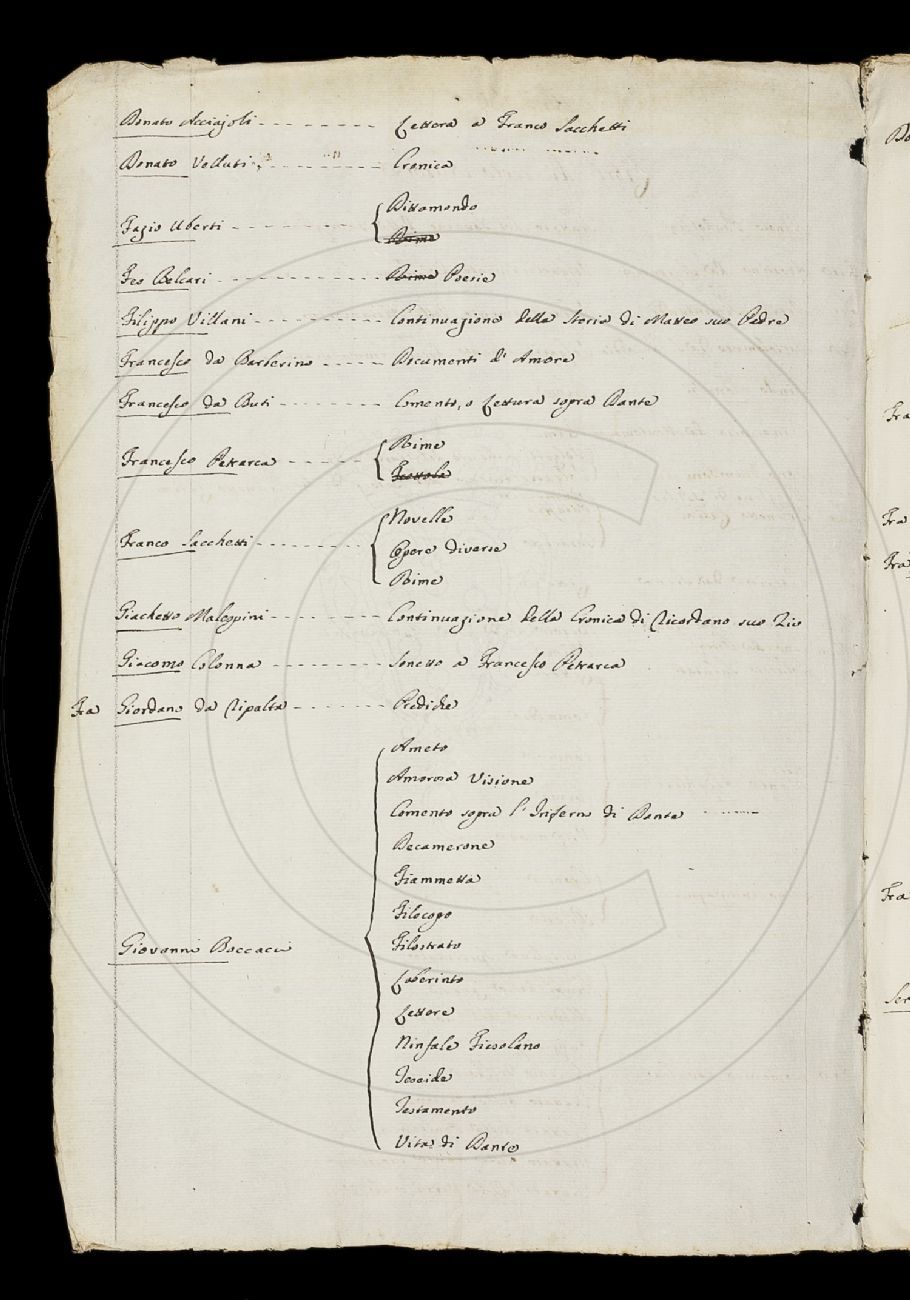 Donato Acciajoli - - - - - - - - Lettera a Franco Sacchetti
Donato Velluti - - - - - - - - Cronica
Fazio Uberti - - - - - - - - Dittamondo
Rime
Feo Belcari - - - - - - - - Rime Poesie
Filippo Villani - - - - - - - - Continuazione della Storia di Matteo suo Padre
Francesco da Barberino - - - - Documenti d'Amore
Francesco da Buti - - - - - - - Comento, o Lettura sopra Dante
Francesco Petrarca - - - - - Rime
Frottola
Franco Sacchetti - - - - - - - Novelle
Opere diverse
Rime
Giachetto Malespini - - - - - - - Continuazione della Cronica di Ricordano suo Zio
Giacomo Colonna - - - - - - - Sonetto a Francesco Petrarca
Fra Giordano da Ripalta - - - - - - Prediche
Giovanni Boccacci
Ameto
Amorosa Visione
Comento sopra l'Inferno di Dante
Decamerone
Fiammetta
Filocopo
Filostrato
Laberinto
Lettere
Ninfale Fiesolano
Teseide
Testamento
Vita di Dante
Fra
Fra
Fra
Fra
Ser